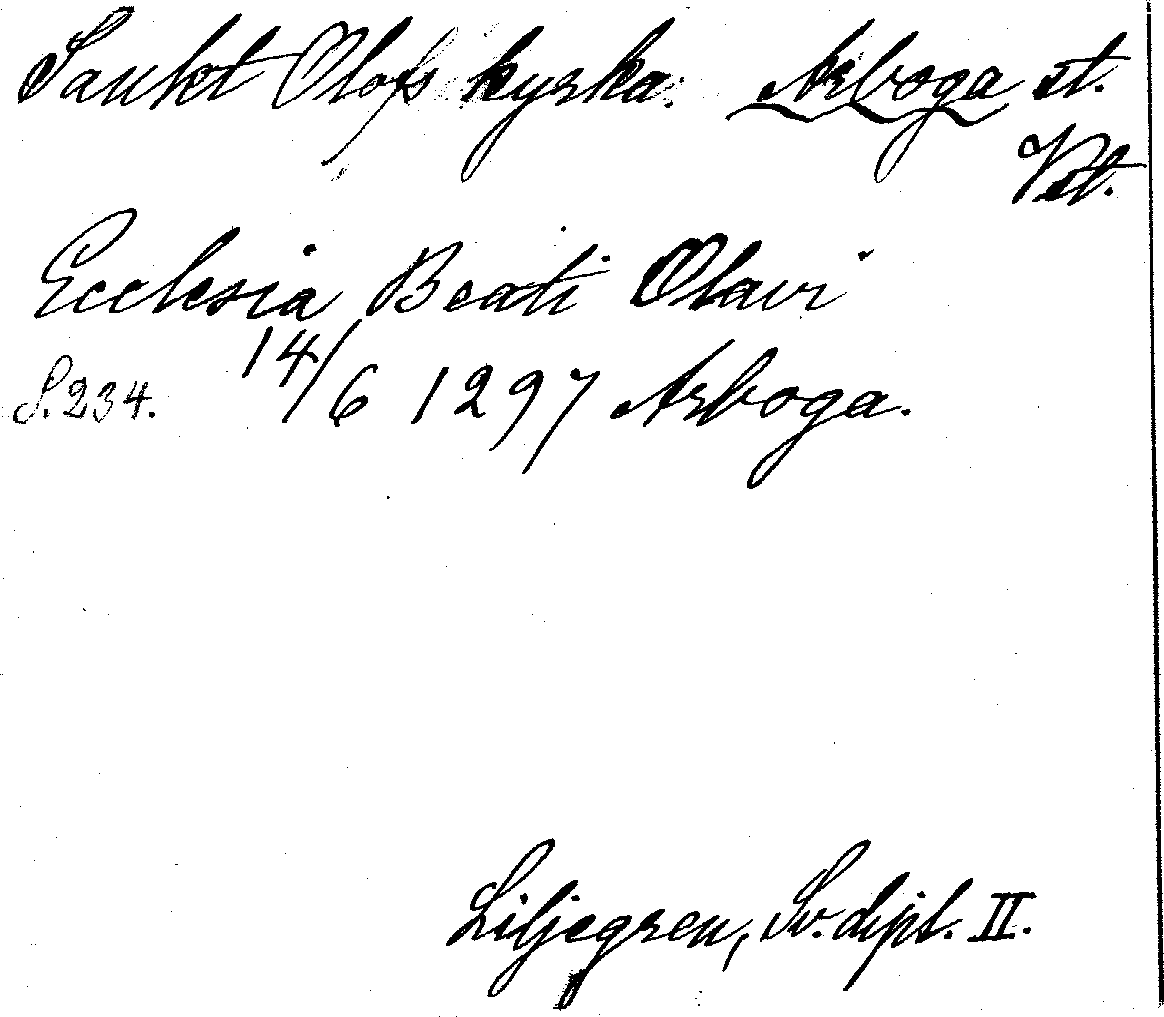 Sankt Olofs kyrka. Arboga st.
Vstl.
Ecclesia Beati Olavi
S. 234. 14/6 1297 Arboga.
Liljegren, Sv. dipl. II.